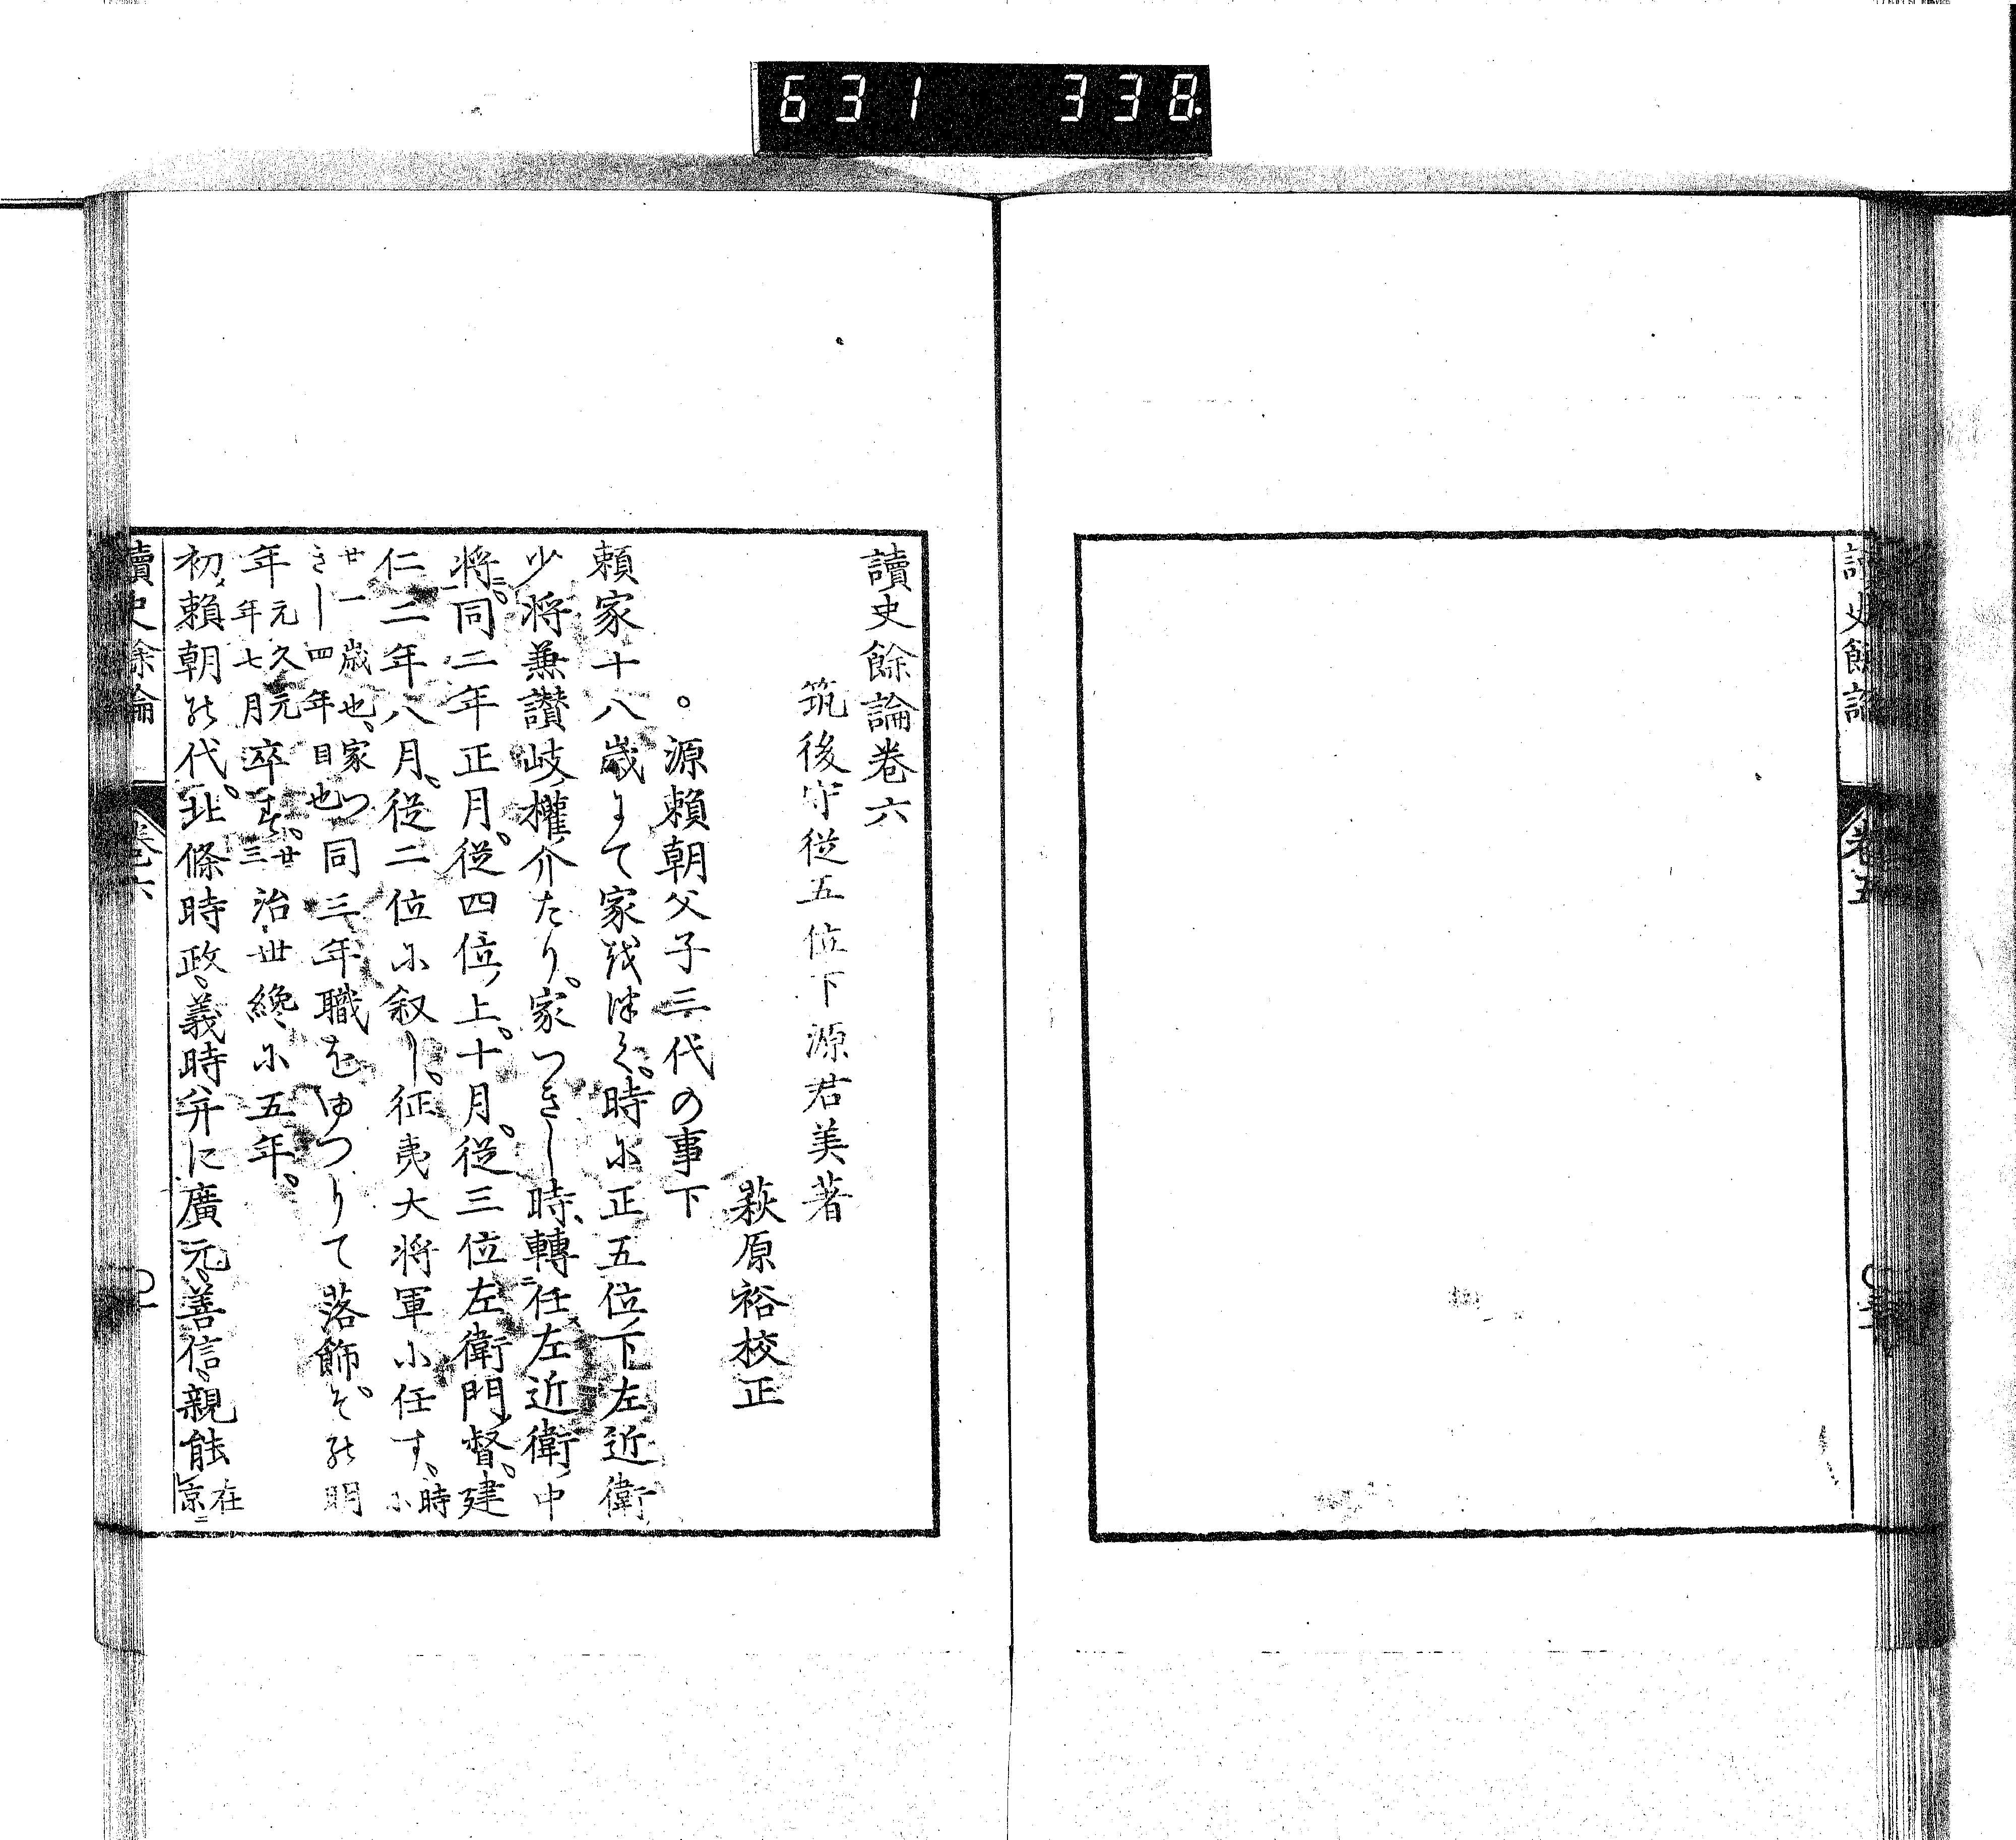 631 338
讀史餘論
卷五
讀史餘論卷六
筑後守從五位下源君美著
萩原裕校正
○源賴朝父子三代の事下
賴家十八歲よて家我つく。時に正五位下左近衛
少將兼讚岐權介たり。家つきし時、轉任左近衛中
將。同二年正月。從四位上。十月。從三位左衛門督。建
仁二年八月。從二位に叙し。征夷大將軍に任す。時に
廿一歲也、家つきし四年目也同三年職をゆつりて落飾そ。の明
年元久元年年七月卒す。廿三治世纔に五年。
初賴朝の代。北條時政、義時幷に廣元、善信、親能在京
讀史餘論
卷六